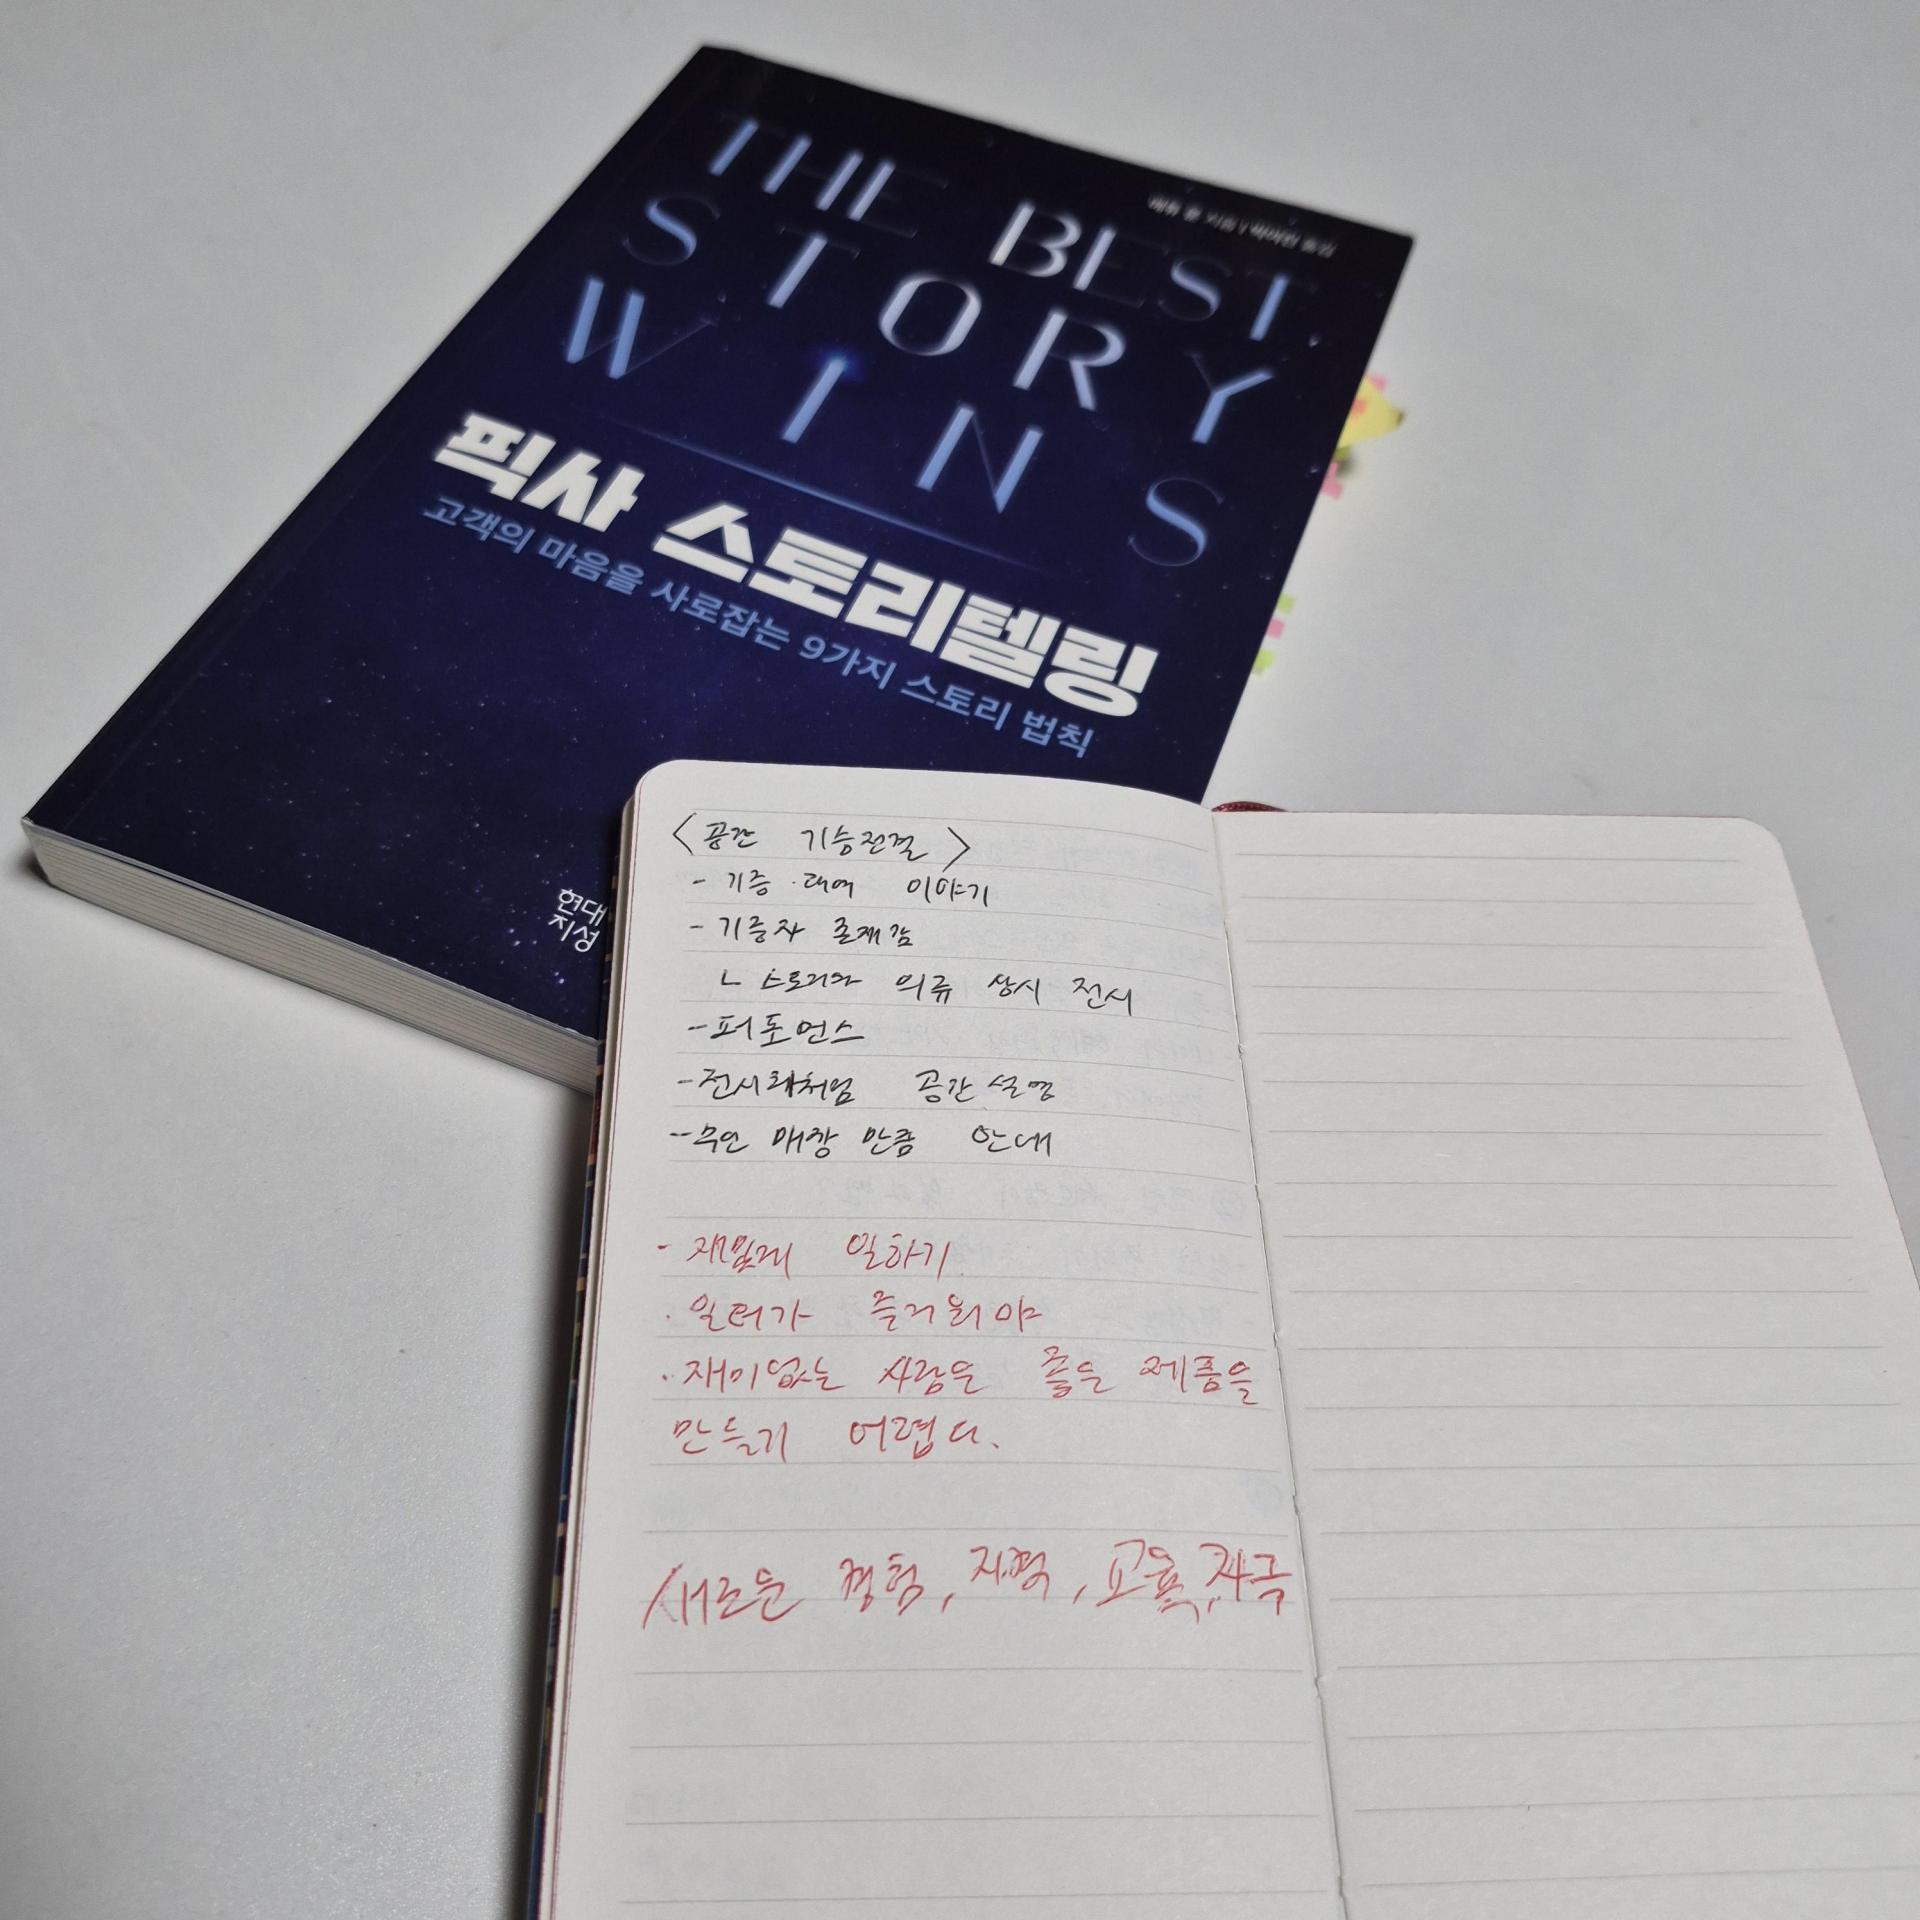 매튜 룬 지음 | 박여진 옮김
THE BEST
STORY
WINS
픽사 스토리텔링
고객의 마음을 사로잡는 9가지 스토리 법칙
현대
지성
<공간 기승전결>
- 기증·대여 이야기
- 기증자 존재감
ㄴ 스토리와 의류 상시 전시
- 퍼포먼스
- 전시회처럼 공간 설명
- 무인 매장 만큼 안내
- 재밌게 일하기
· 일터가 즐거워야
· 재미없는 사람은 좋은 제품을
만들기 어렵다.
새로운 경험, 지혜, 교육, 자극